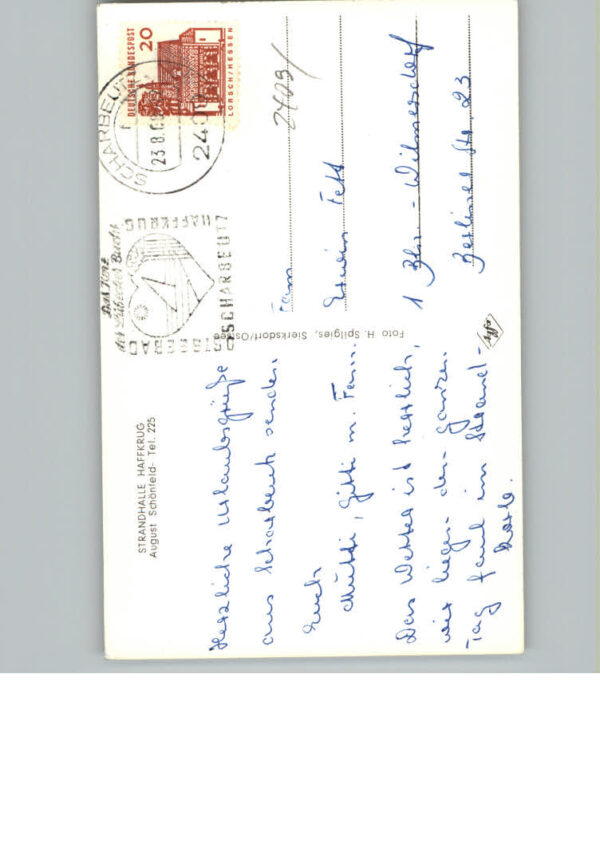 STRANDHALLE HAFFKRUG
August Schönfeld - Tel. 225
Herzliche Urlaubsgrüße
aus Scharbeutz senden
Euch
Mutti, Gitti m. Fam.
Das Wetter ist herrlich,
wir liegen den ganzen
Tag faul im Strand-
korb.
Foto H. Spilgies, Sierksdorf/Ostsee
Agfa
Das Herz
der Lübecker Bucht
OSTSEEBAD
SCHARBEUTZ
HAFFKRUG
SCHARBEUTZ
23.8.
2409
DEUTSCHE BUNDESPOST
20
LORSCH/HESSEN
2409/
Fam
Erwin Fett
1 Bln-Wilmersdorf
Berliner Str. 23